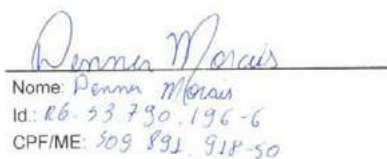 Denner Morais
Nome: Denner Morais
Id.: RG. 53.790.196-6
CPF/ME: 509 891 918-50